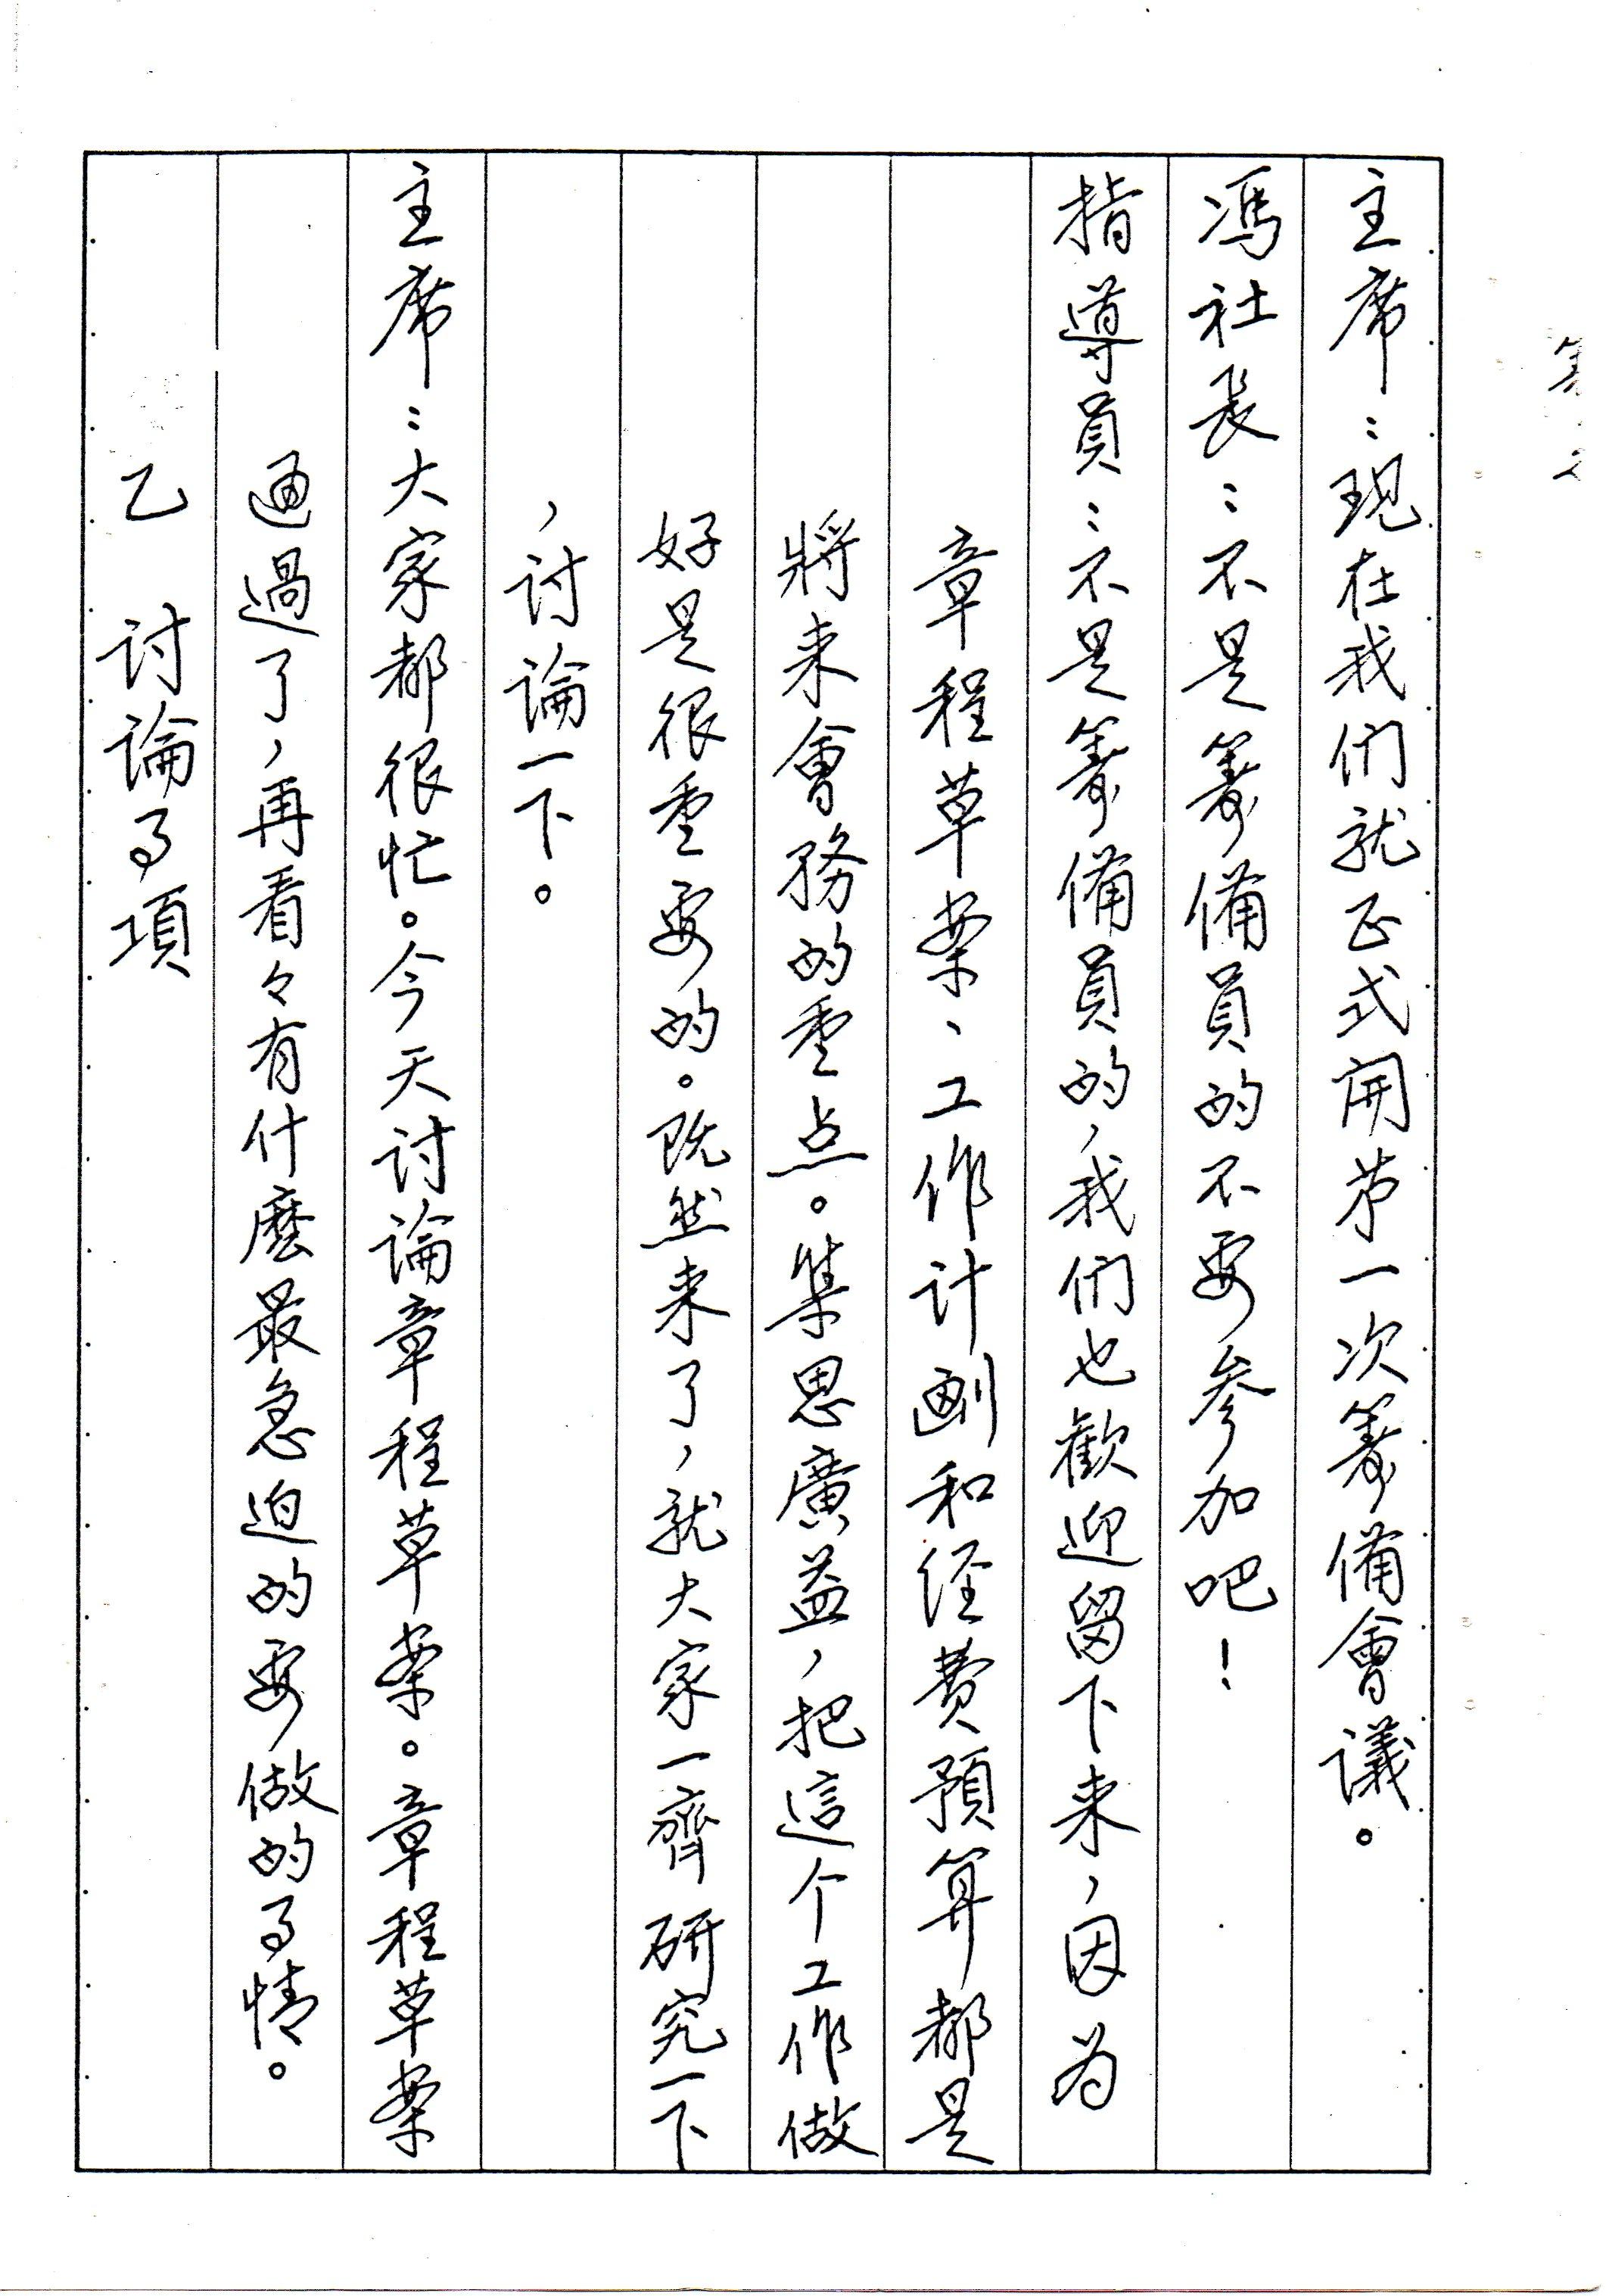 主席：現在我们就正式開第一次籌備會議。
馮社長：不是籌備員的不要参加吧！
指導員：不是籌備員的，我们也歡迎留下来，因为
章程草案、工作計劃和经費預算都是
將来會務的重点。集思廣益，把這个工作做
好是很重要的。既然来了，就大家一齊研究一下
，討論一下。
主席：大家都很忙。今天討論章程草案。章程草案
通過了，再看々有什麼最急迫的要做的事情。
乙　討論事項